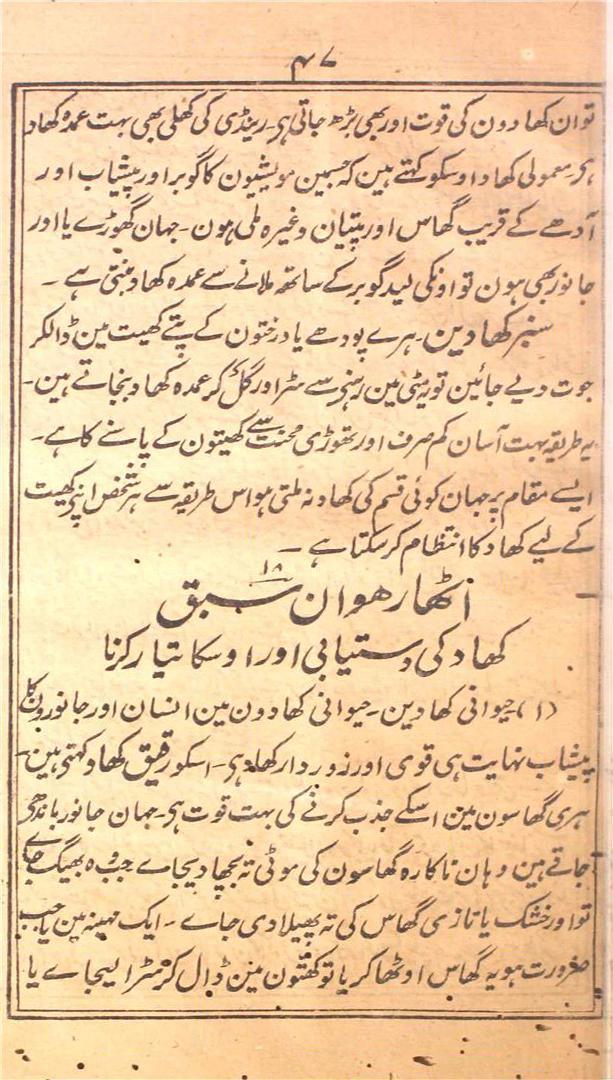 ۴۷
توان کھادون کی قوت اور بھی بڑھ جاتی ہی۔ رینڈی کی کھلی بھی بہت عمدہ کھاد
ہی۔ معمولی کھاد اوسکو کہتے ہین کہ جسمین مویشیون کا گوبر اور پیشاب اور
آدھے کے قریب گھاس اور پتیان وغیرہ ملی ہون۔ جہان گھوڑے یا اور
جانور بھی ہون تو اونکی لید گوبر کے ساتھ ملانے سے عمدہ کھاد بنتی ہے ۔
سبز کھادین۔ ہرے پودھے یا درختون کے پتے کھیت مین ڈالکر
جوت دیے جائین تو مٹی مین رہنی سے سڑ اور گل کر عمدہ کھاد بنجاتے ہین۔
یہ طریقہ بہت آسان کم صرف اور تھوڑی محنت سے کھیتون کے پانسنے کا ہے۔
ایسے مقام پر جہان کوئی قسم کی کھاد نہ ملتی ہو اس طریقہ سے ہر شخص اپنی کھیت
کے لیے کھاد کا انتظام کر سکتا ہے ۔
۱۸
اٹھارھوان سبق
کھاد کی دستیابی اور اوسکا تیار کرنا
(۱) حیوانی کھادین۔ حیوانی کھادون مین انسان اور جانورون کا
پیشاب نہایت ہی قوی اور زوردار کھاد ہی۔ اسکو رقیق کھاد کہتی ہین۔
ہری گھاسون مین اسکے جذب کرنے کی بہت قوت ہی۔ جہان جانور باندھی
جاتے ہین وہان ناکارہ گھاسون کی موٹی تہ بچھا دیجاے جب وہ بھیگ جاے
تو اور خشک یا تازی گھاس کی تہ پھیلا دی جاے ۔ ایک مہینہ مین یا جب
ضرورت ہو یہ گھاس اوٹھا کر یا تو کھیتون مین ڈال کر سڑا لیجاے یا